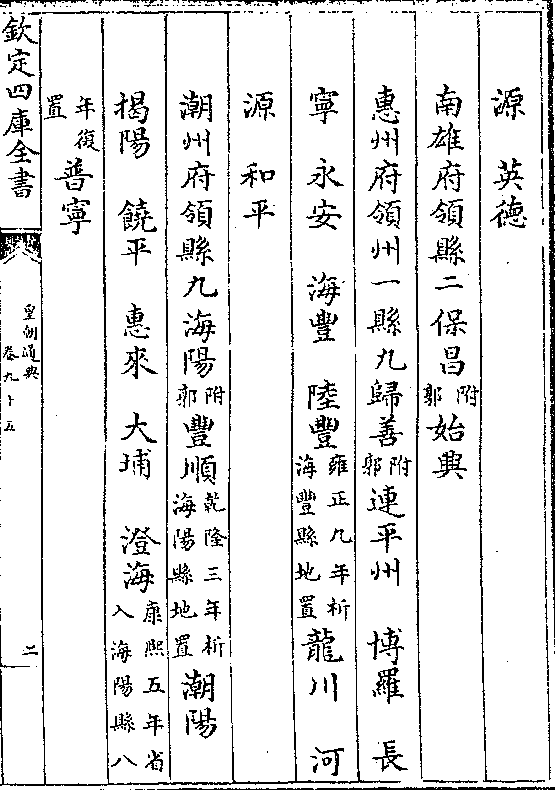 源　英德
南雄府領縣二保昌附郭始興
惠州府領州一縣九歸善附郭連平州　博羅　長
寧　永安　海豐　陸豐雍正九年析海豐縣地置龍川　河
源　和平
潮州府領縣九海陽附郭豐順乾隆三年析海陽縣地置潮陽
揭陽　饒平　惠來　大埔　澄海康熙五年省入海陽縣八
年復置普寧
欽定四庫全書
皇朝通典
卷九十五
二